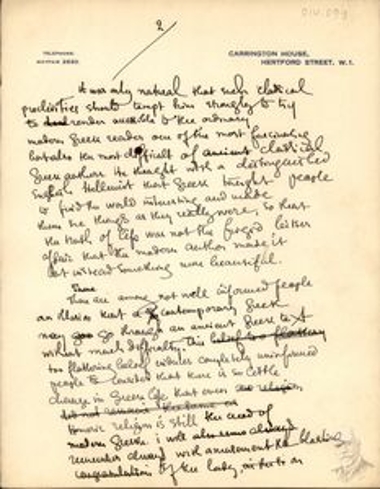 DIV. 099
2
TELEPHONE
MAYFAIR
CARRINGTON HOUSE,
HERTFORD STREET. W.1.
it was only natural that such classical
proclivities should tempt him strongly to try
to render accessible to the ordinary
modern Greek reader one of the most fascinating
but also the most difficult of ancient classical
Greek authors. He thought with a distinguished
Hellenist that Greek taught people
to find the world interesting and made
them see things as they really were, so that
the truth of life was not the forged bitter
affair that the modern author made it
but instead something more beautiful.
There are among not well informed people
an illusion that a contemporary Greek
may go through an ancient Greek text
without much difficulty. This belief too flattering
too flattering belief induces completely uninformed
people to that there is so little
change in Greek life that even religion
Homeric religion is still the creed of
modern Greece. i will always
remember always with amusement the
congratulations of the lady, on